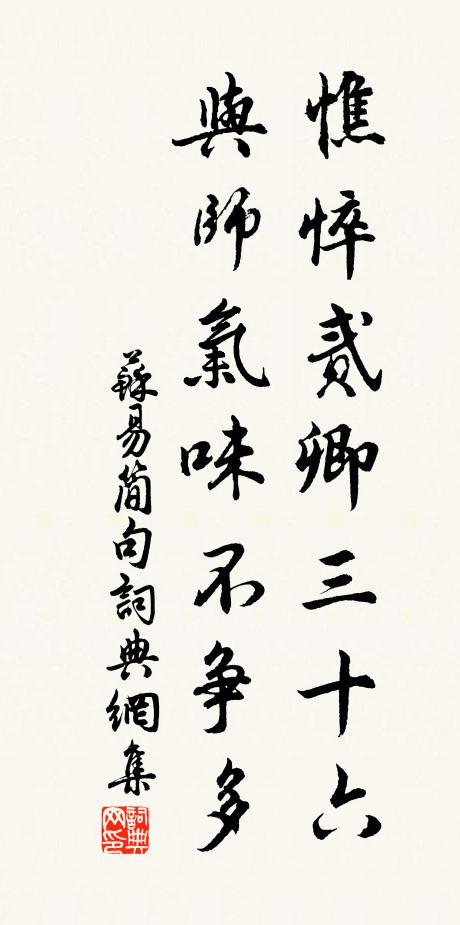 憔悴貳卿三十六
與師氣味不争多
蘇易簡句詞典網集
詞典网印